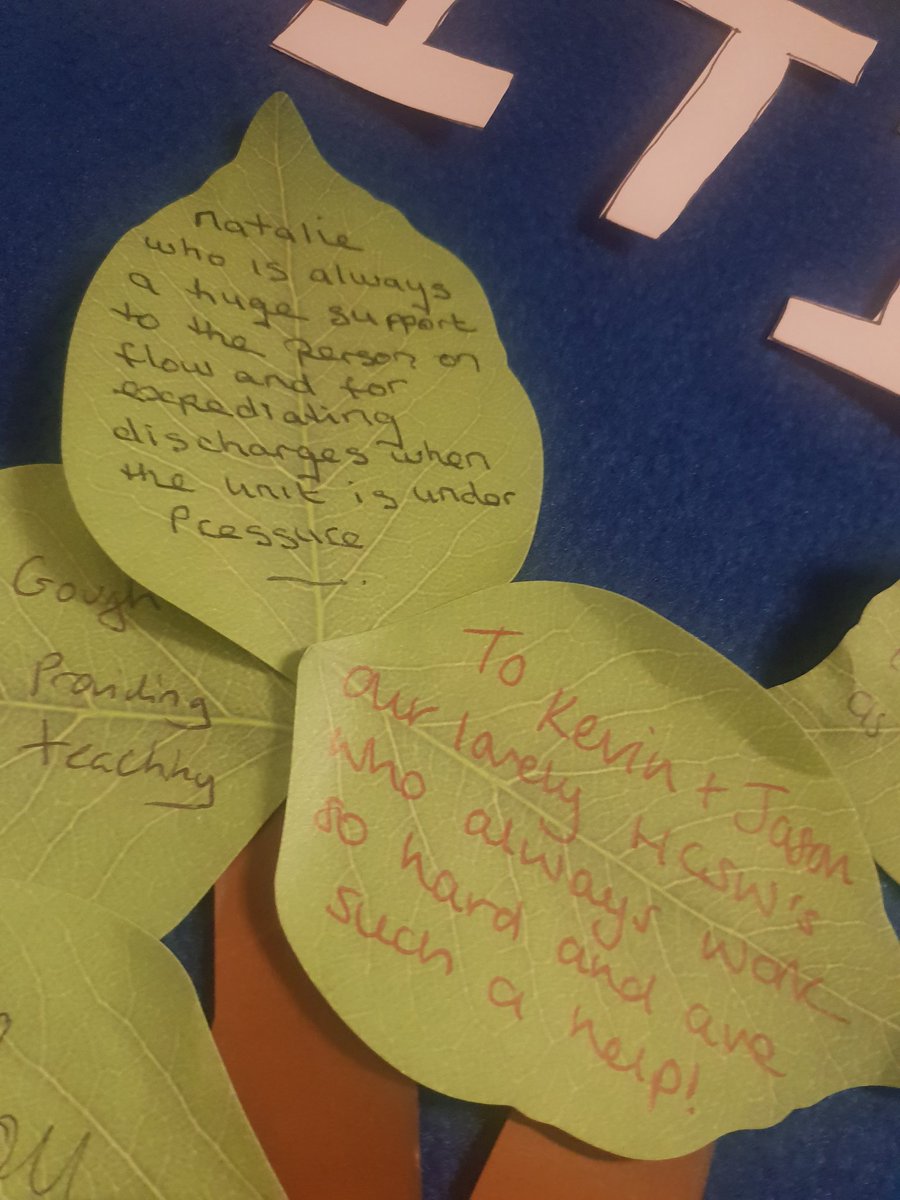 I T
I
Natalie
who is always
a huge support
to the person on
flow and for
expediating
discharges when
the unit is under
Pressure
Gough
Providing
teaching
To Kevin + Jason
our lovely HCSW's
who always work
so hard and are
such a help!
as